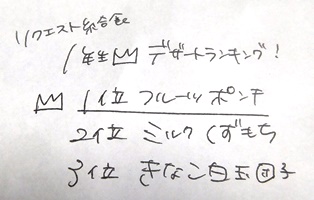 リクエスト給食
1年生 デザートランキング!
1位 フルーツポンチ
2位 ミルクくずもち
3位 きなこ白玉団子